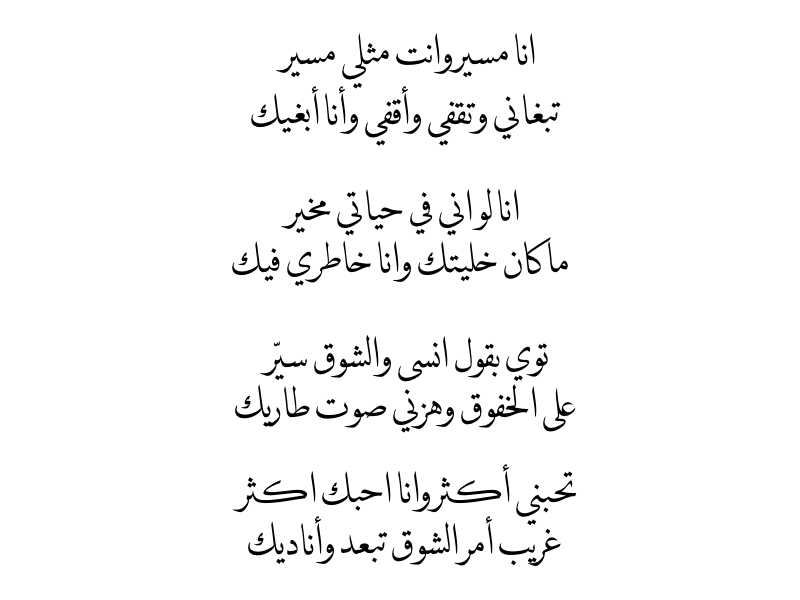 انا مسير وانت مثلي مسير
تبغاني وتقفي وأقفي وأنا أبغيك
انا لو اني في حياتي مخير
ماكان خليتك وانا خاطري فيك
توي بقول انسى والشوق سيّر
على الخفوق وهزني صوت طاريك
تحبني أكثر وانا احبك اكثر
غريب أمر الشوق تبعد وأناديك